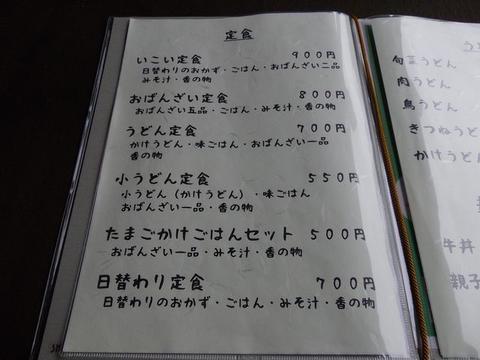 定食
いこい定食 900円
日替わりのおかず・ごはん・おばんざい二品
みそ汁・香の物
おばんざい定食 800円
おばんざい五品・ごはん・みそ汁・香の物
うどん定食 700円
かけうどん・味ごはん・おばんざい一品
香の物
小うどん定食 550円
小うどん(かけうどん)・味ごはん
おばんざい一品・香の物
たまごかけごはんセット 500円
おばんざい一品・みそ汁・香の物
日替わり定食 700円
日替わりのおかず・ごはん・みそ汁・香の物
旬菜うどん
肉うどん
鳥うどん
きつねうど
かけうどん
牛丼
親子